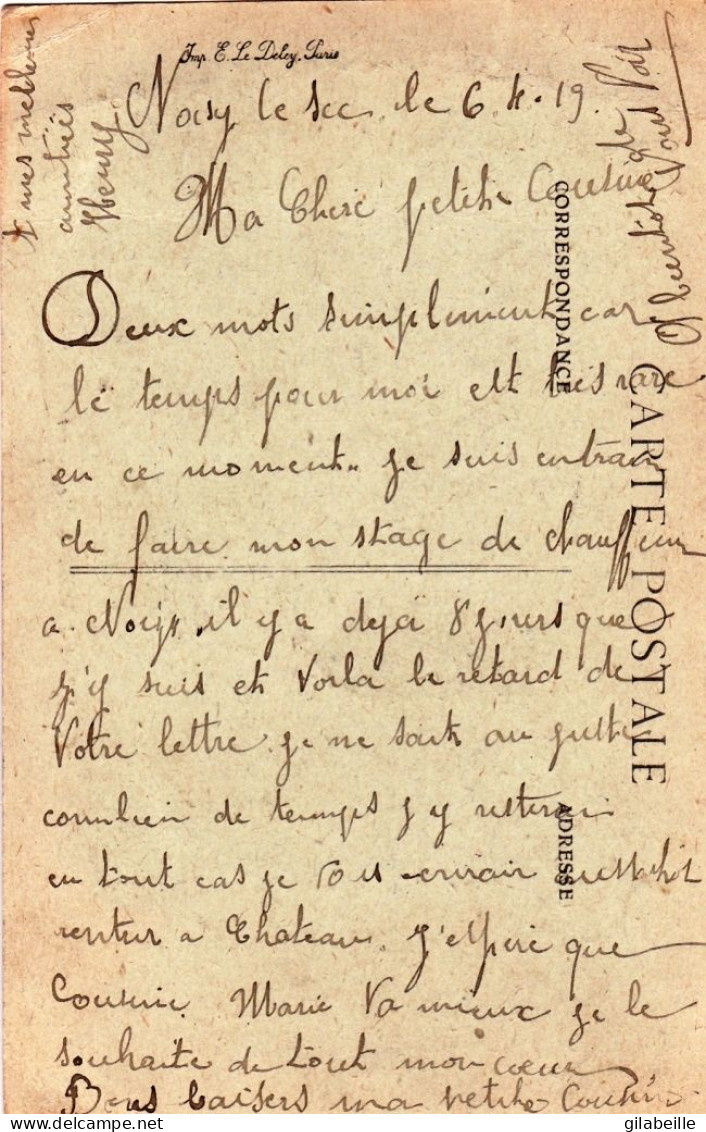 Imp. E. Le Deley, Paris
Noisy le sec le 6.4.19.
Ma Chere petite Cousine
Deux mots simplement car
le temps pour moi est très rare
en ce moment.. je suis entrain
de faire mon stage de chauffeur
a Noisy. il y a deja 8 jours que
j'y suis et voila le retard de
Votre lettre. je ne sait au juste
combien de temps j'y resterai
en tout cas je vous ecrirai aussitot
rentrer a Chateau. J'espere que
Cousine Marie va mieux je le
souhaite de tout mon coeur
Bons baisers ma petite Cousine
de Vous Voir
& mes meilleures
amitiés
Henry
CORRESPONDANCE
CARTE POSTALE
ADRESSE
delcampe.net
gilabeille